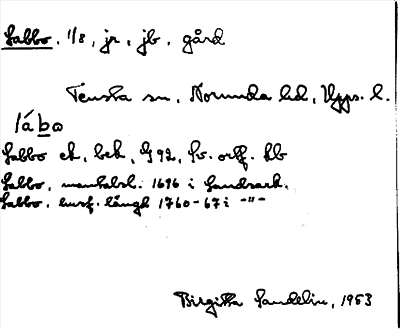 Sabbo, 1/8, jr, jb, gård
Tensta sn, Norunda hd, Upps. l.
Sabbo ek, bek, G 92, fv. orff. bb
Sabbo, mantalsl. 1696 i Landsark.
Sabbo, husf. längd 1760-67 i -"-
Birgitta Sandelin, 1953